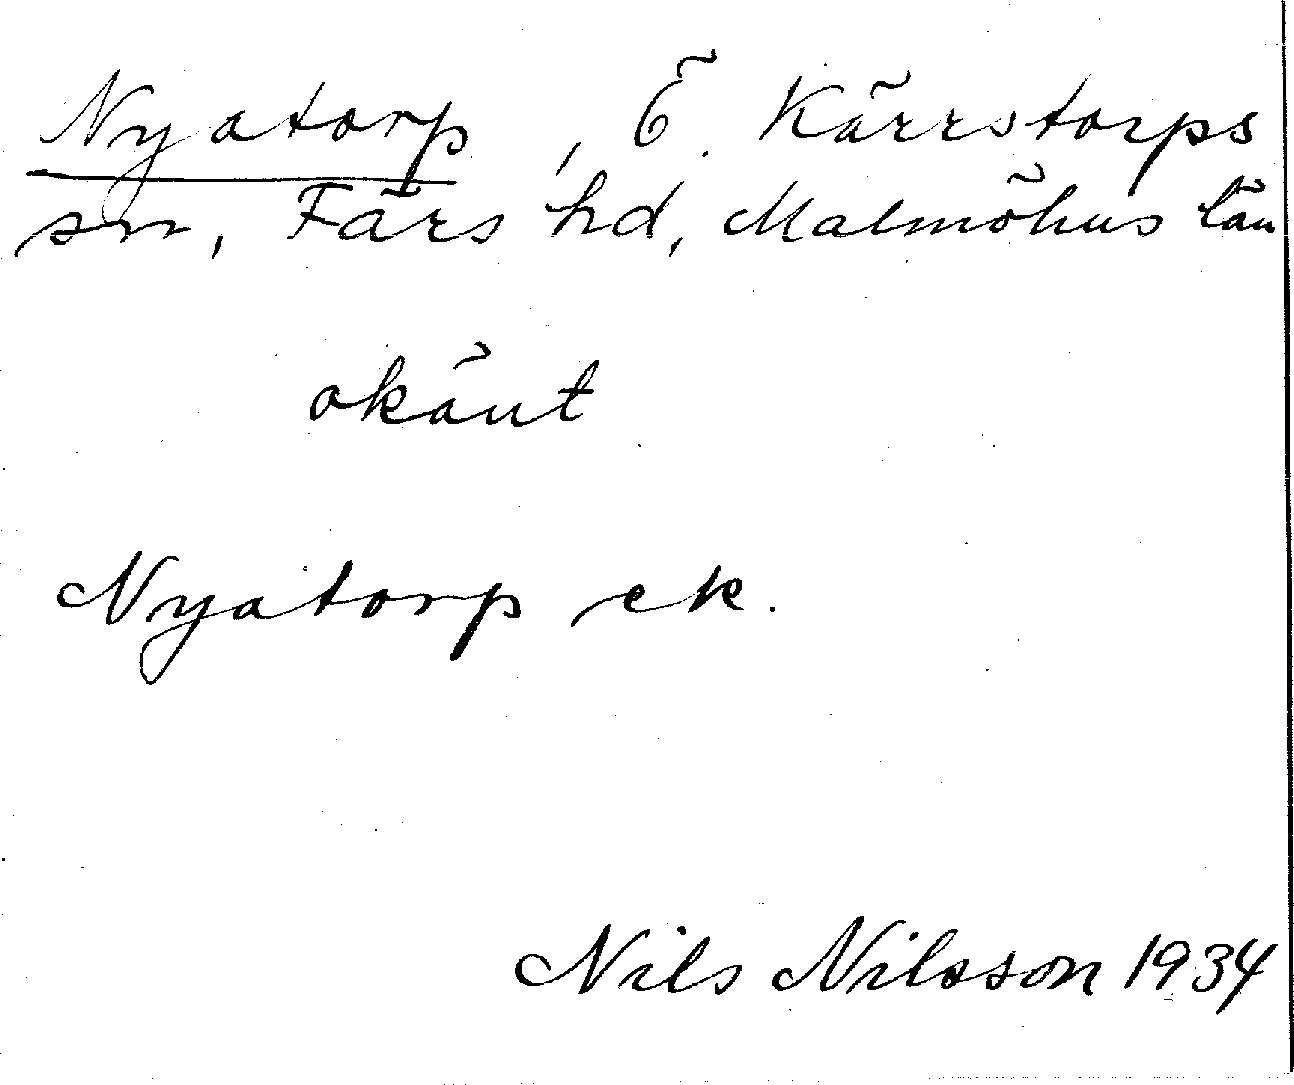 Nyatorp, Ö. Kärrstorps
sn, Färs hd, Malmöhus län
okänt
Nyatorp ek.
Nils Nilsson 1934